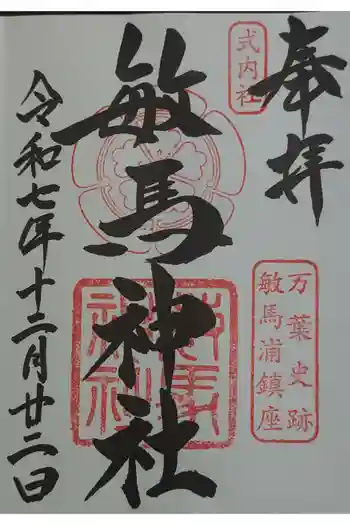 奉拝
式内社
万葉史跡
敏馬浦鎮座
敏馬神社
敏馬
神社
令和七年十二月廿二日